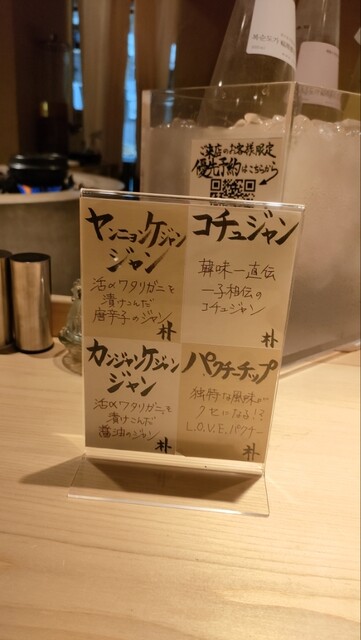 ご来店のお客様限定
優先予約はこちらから
ヤンニョンケジャン
ジャン
活〆ワタリガニを
漬けこんだ
唐辛子のジャン
朴
コチュジャン
韓味一直伝
一子相伝の
コチュジャン
朴
カンジャンケジャン
ジャン
活〆ワタリガニを
漬けこんだ
醤油のジャン
朴
パクチーチップ
独特な風味が
クセになる!?
L.O.V.E.パクチー
朴